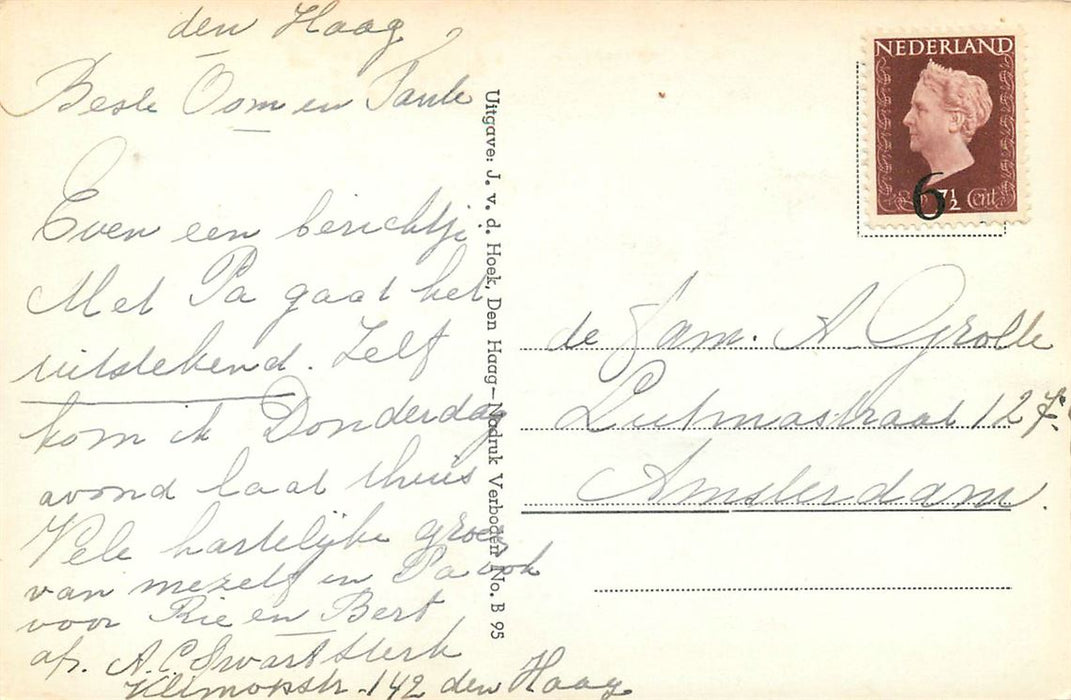 den Haag
Beste Oom en Tante
Even een berichtje
Met Pa gaat het
uitstekend. Zelf
kom ik Donderdag
avond laat thuis
Vele hartelijke groet
van mezelf en Pa ook
voor Rie en Bert
afz. A.C. Swart Sterk
Klimopstr. 142 den Haag
Uitgave: J. v. d. Hoek, Den Haag – Nadruk Verboden No. B 95
NEDERLAND
6
7½ Cent
de Fam. A Grolle
Lutmastraat 127
Amsterdam.